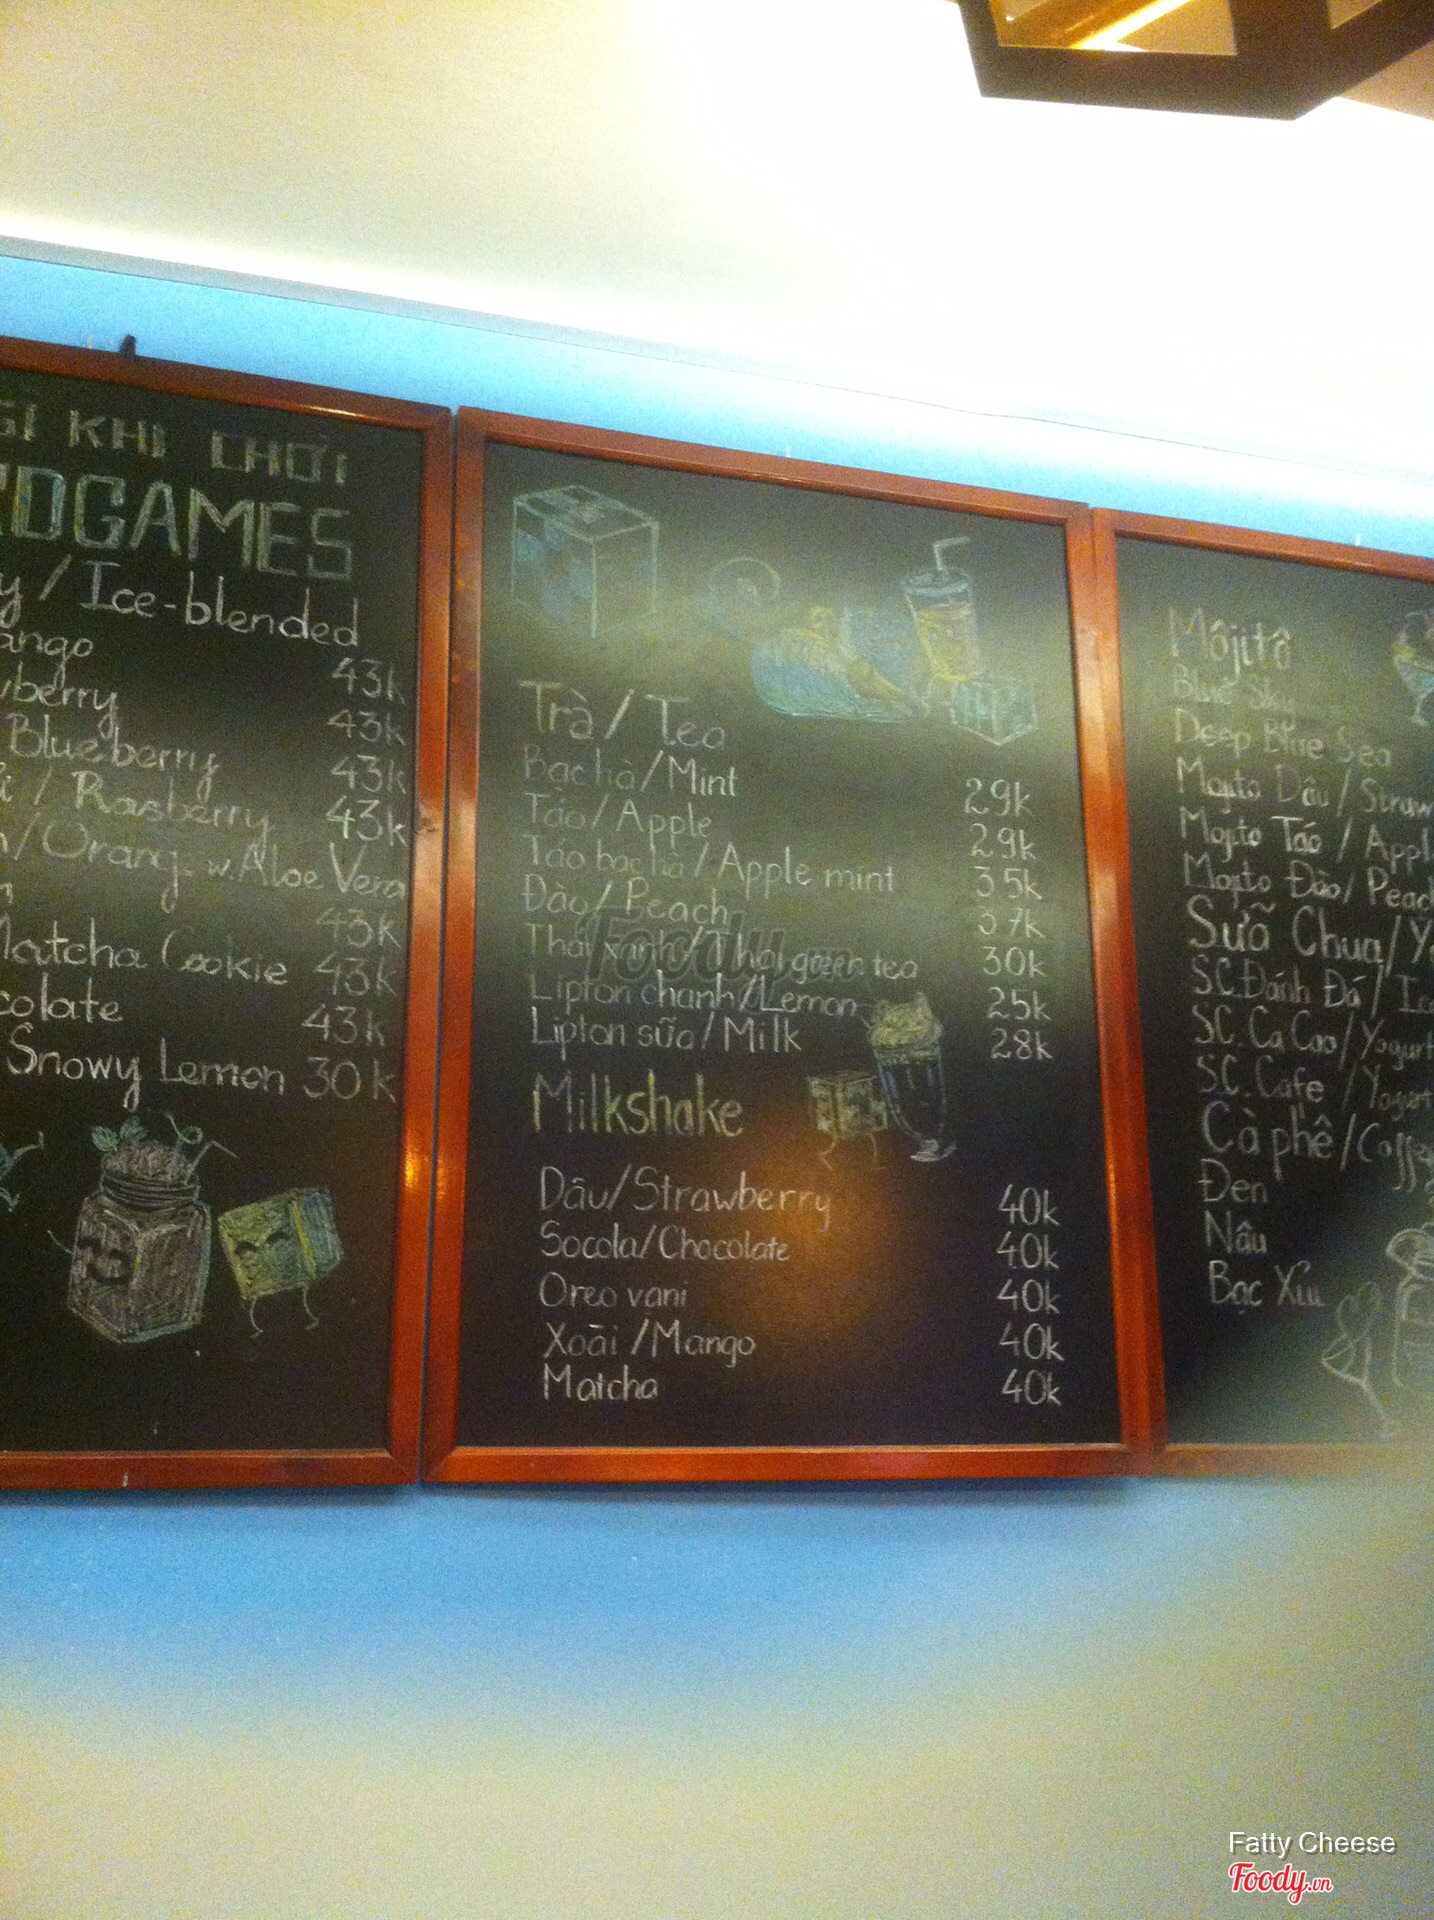 GÌ KHI CHƠI
DGAMES
y / Ice-blended
ango 43k
wberry 43k
Blueberry 43k
i / Rasberry 43k
/Orang. w.Aloe Vera
43k
Matcha Cookie 43k
colate 43k
Snowy Lemon 30k
Trà / Tea
Bạc hà/Mint 29k
Táo/Apple 29k
Táo bạc hà/Apple mint 35k
Đào/Peach 37k
Thái xanh/Thai green tea 30k
Lipton chanh/Lemon 25k
Lipton sữa/Milk 28k
Milkshake
Dâu/Strawberry 40k
Socola/Chocolate 40k
Oreo vani 40k
Xoài /Mango 40k
Matcha 40k
Môjitô
Blue Sky
Deep Blue Sea
Mojito Dâu / Straw
Mojto Táo / Appl
Mojto Đào/ Peac
Sữa Chua/Y
SC.Đánh Đá/ Ic
SC.Ca Cao/Yogurt
S.C.Cafe /Yogurt
Cà phê/Coffe
Đen
Nâu
Bạc Xỉu
Foody.vn
Fatty Cheese
Foody.vn